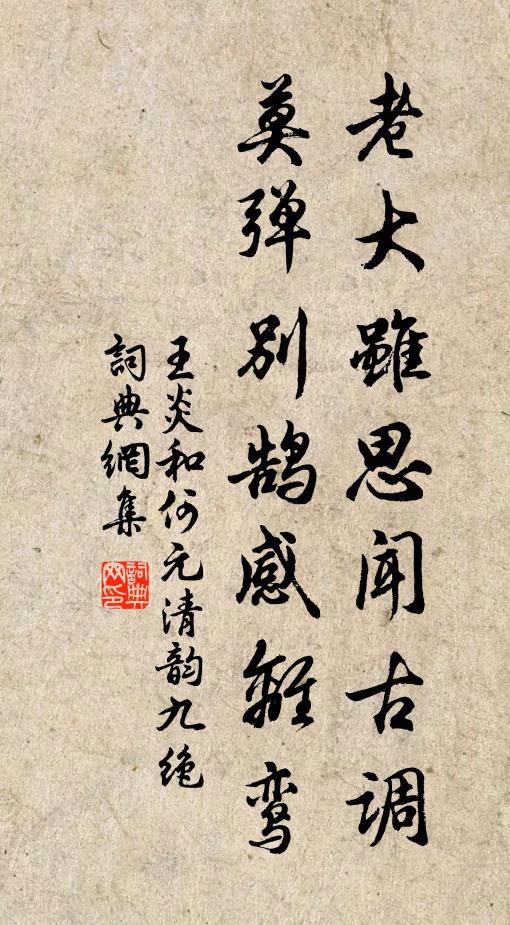 老大雖思闻古调
莫弹别鹄感離鸾
王炎和何元清韵九绝
詞典網集
詞典网印